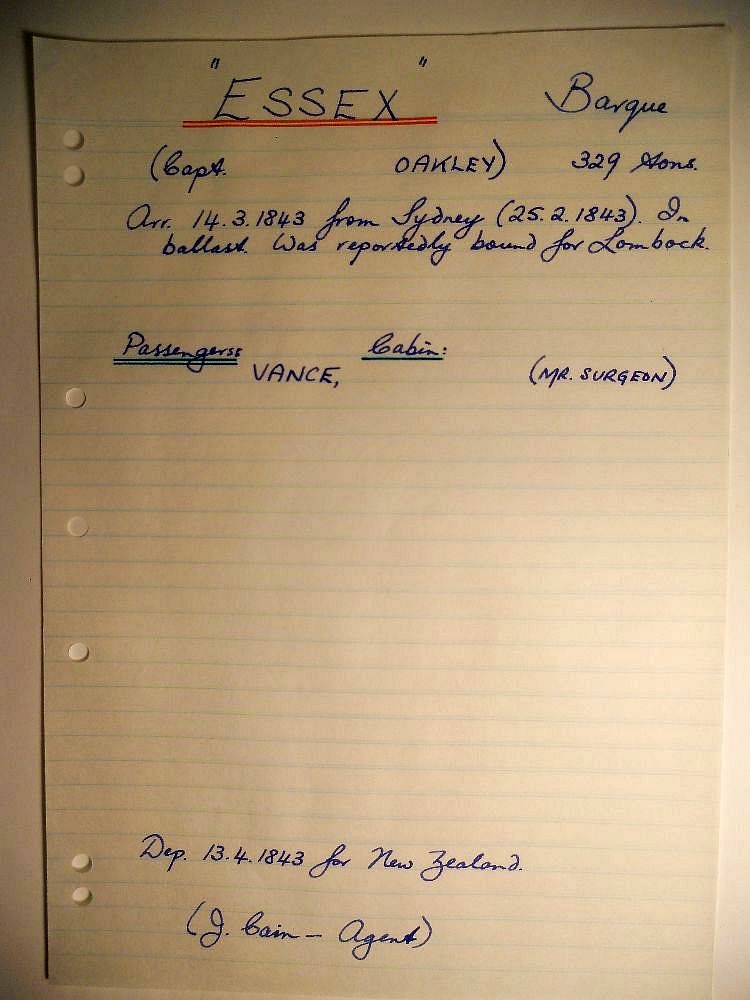 "ESSEX" Barque
(Capt. OAKLEY) 329 tons.
Arr. 14.3.1843 from Sydney (25.2.1843). In
ballast. Was reportedly bound for Lombock.
Passengers: Cabin:
VANCE, (MR. SURGEON)
Dep. 13.4.1843 for New Zealand.
(J. Cain - Agent)